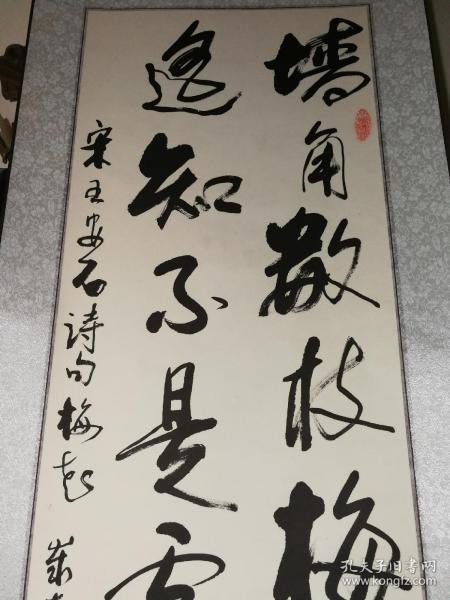 墙角数枝梅
遥知不是雪
宋王安石诗句梅花
孔夫子旧书网